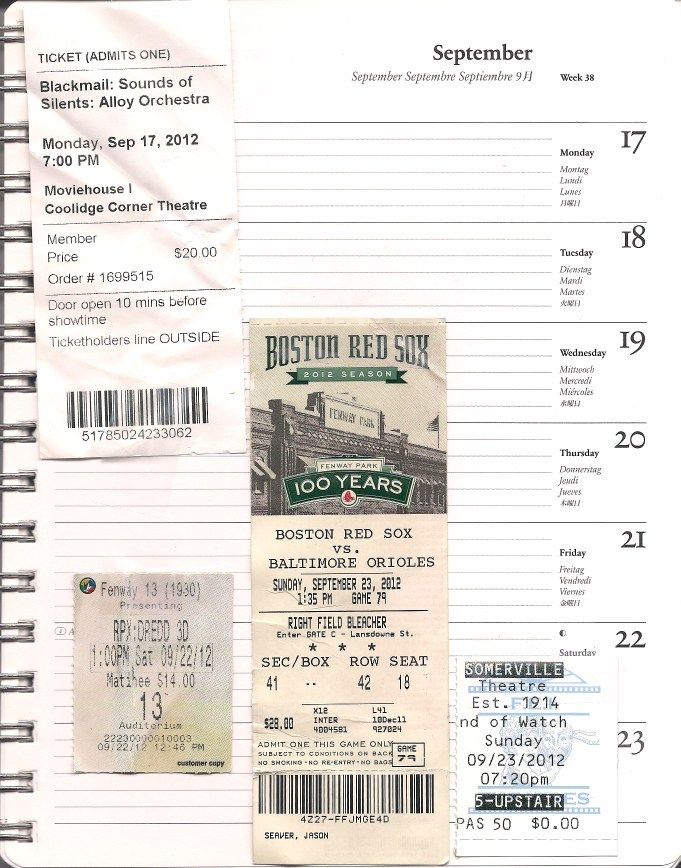 TICKET (ADMITS ONE)
Blackmail: Sounds of
Silents: Alloy Orchestra
Monday, Sep 17, 2012
7:00 PM
Moviehouse I
Coolidge Corner Theatre
Member
Price $20.00
Order # 1699515
Door open 10 mins before
showtime
Ticketholders line OUTSIDE
51785024233062
September
September Septembre Septiembre 9月
Week 38
17
Monday
Montag
Lundi
Lunes
月曜日
18
Tuesday
Dienstag
Mardi
Martes
火曜日
19
Wednesday
Mittwoch
Mercredi
Miércoles
水曜日
20
Thursday
Donnerstag
Jeudi
Jueves
木曜日
21
Friday
Freitag
Vendredi
Viernes
金曜日
22
Saturday
23
BOSTON RED SOX
2012 SEASON
FENWAY PARK
FENWAY PARK
100 YEARS
BOSTON RED SOX
VS.
BALTIMORE ORIOLES
SUNDAY, SEPTEMBER 23, 2012
1:35 PM GAME 79
RIGHT FIELD BLEACHER
Enter GATE C - Lansdowne St.
* * *
SEC/BOX ROW SEAT
41 -- 42 18
X12 L41
$28.00 INTER 10Dec11
4004581 927024
ADMIT ONE THIS GAME ONLY
SUBJECT TO CONDITIONS ON BACK
NO SMOKING · NO RE-ENTRY · NO BAGS
GAME
79
4Z27-FFJMGE4D
SEAVER, JASON
Fenway 13 (1930)
Presenting
RPX:DREDD 3D
1:00PM Sat 09/22/12
Matinee $14.00
13
Auditorium
22230090010003
09/22/12 12:46 PM
customer copy
SOMERVILLE
Theatre
Est. 1914
nd of Watch
Sunday
09/23/2012
07:20pm
5-UPSTAIR
PAS 50 $0.00